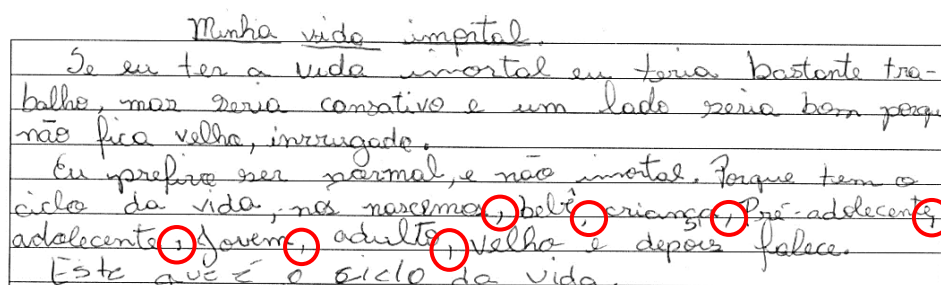 Minha vida imortal.
Se eu ter a vida imortal eu teria bastante tra-
balho, mas seria cansativo e um lado seria bom porqu
não fica velho, inrrugado.
Eu prefiro ser normal, e não imortal. Porque tem o
ciclo da vida, nos nascemos, bebê, criança, Pré-adolecente,
adolecente, Jovem, adulto, velho e depois falece.
Este que é o ciclo da vida.